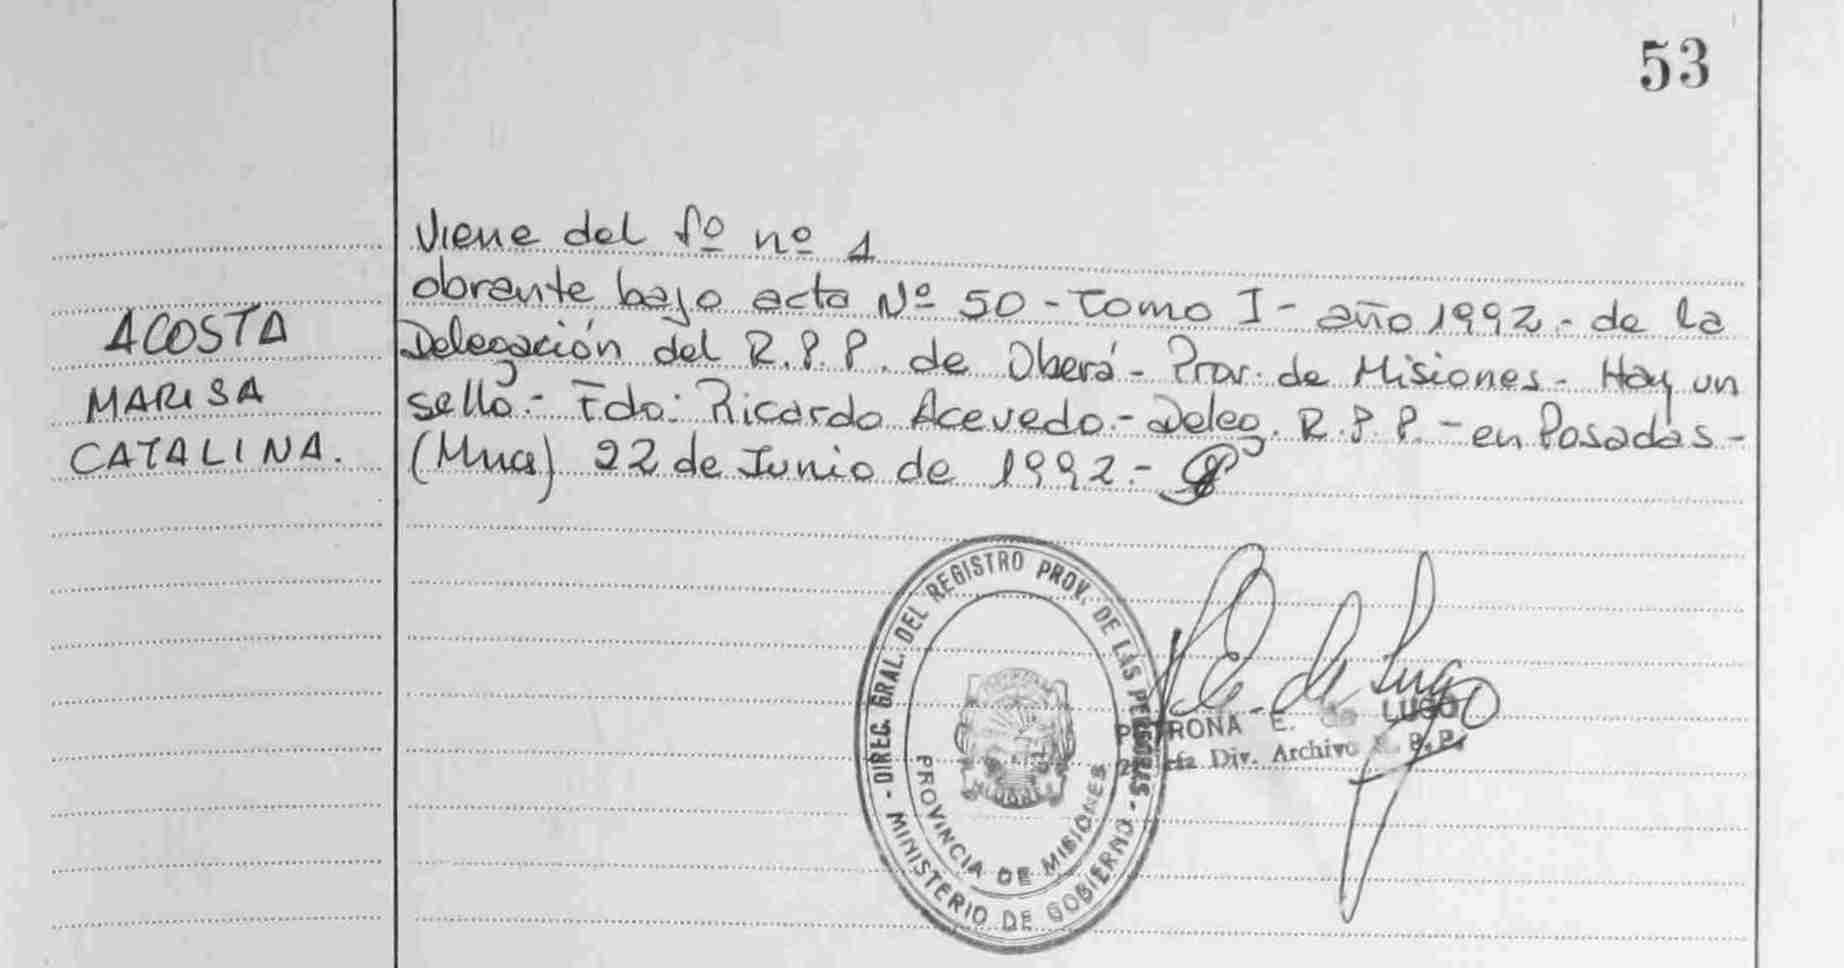 53
Viene del fº nº 1
obrante bajo acta Nº 50 - Tomo I - año 1992 - de la
Delegación del R.P.P. de Oberá - Prov. de Misiones - Hay un
sello.- Fdo: Ricardo Acevedo.- Deleg. R.P.P. - en Posadas -
(Mnes) 22 de Junio de 1992.-
ACOSTA
MARISA
CATALINA.
- DIREC. GRAL. DEL REGISTRO PROV. DE LAS PERSONAS -
MINISTERIO DE GOBIERNO
PROVINCIA DE MISIONES
E. de Lugo
PETRONA E. de LUGO
Jefa Div. Archivo R.P.P.